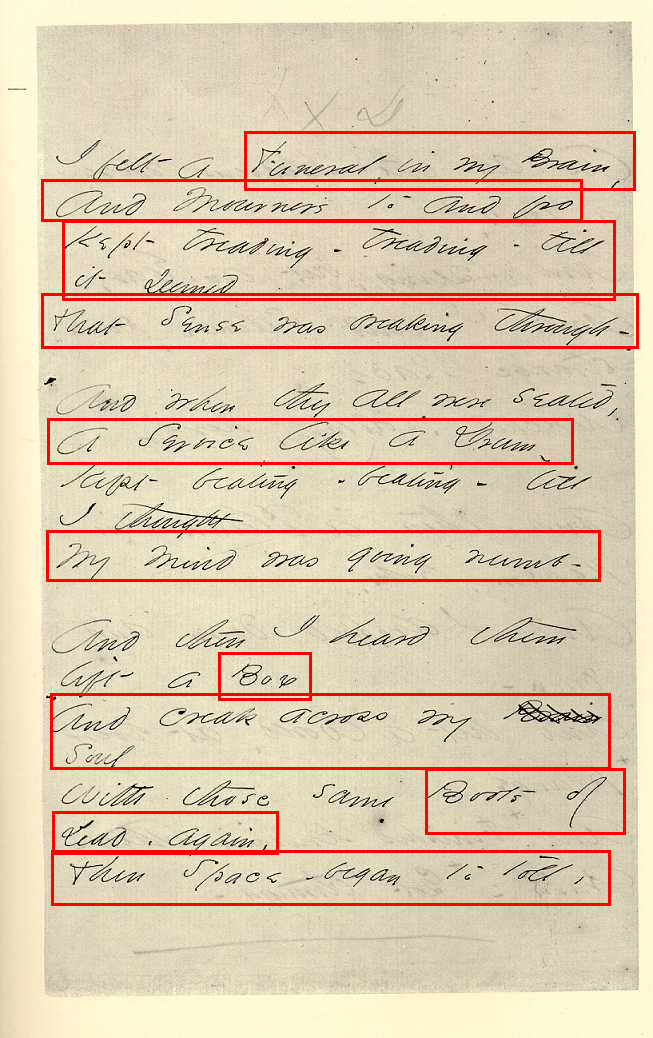 I felt a Funeral, in my Brain,
And Mourners to and fro
Kept treading - treading - till
it seemed
That Sense was breaking through -
And when they all were seated,
A Service, like a Drum -
Kept beating - beating - till
I thought
My Mind was going numb -
And then I heard them
lift a Box
And creak across my Brain
Soul
With those same Boots of
Lead, again,
Then Space - began to toll,